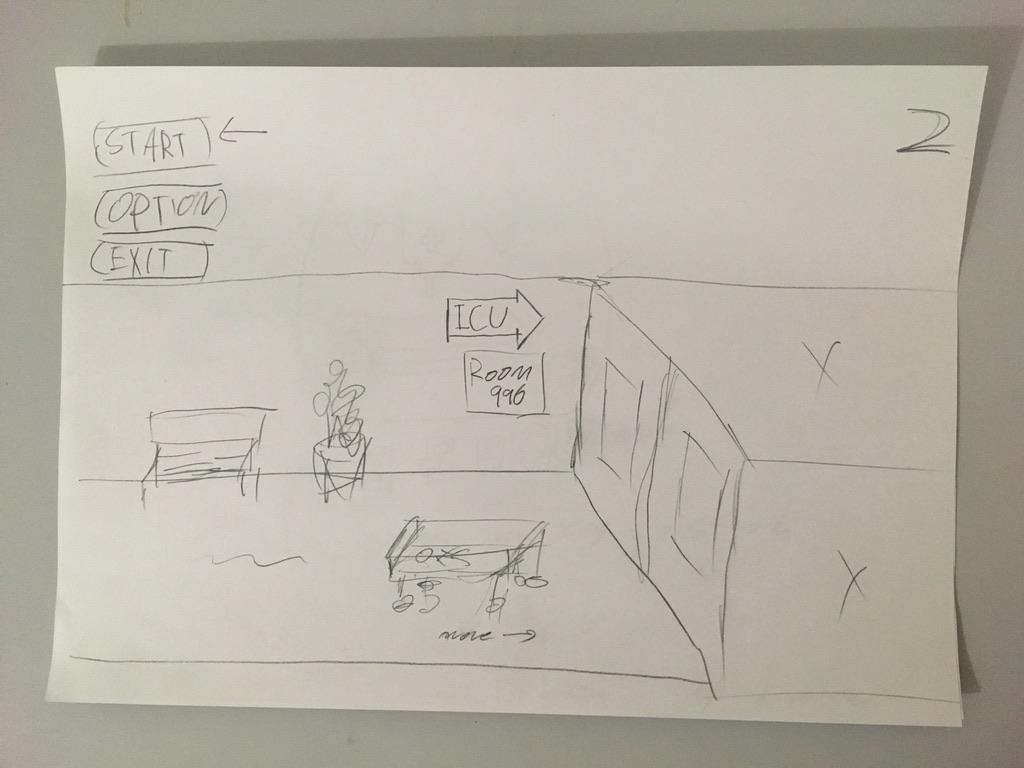 START
2
OPTION
EXIT
ICU
ROOM
996
move